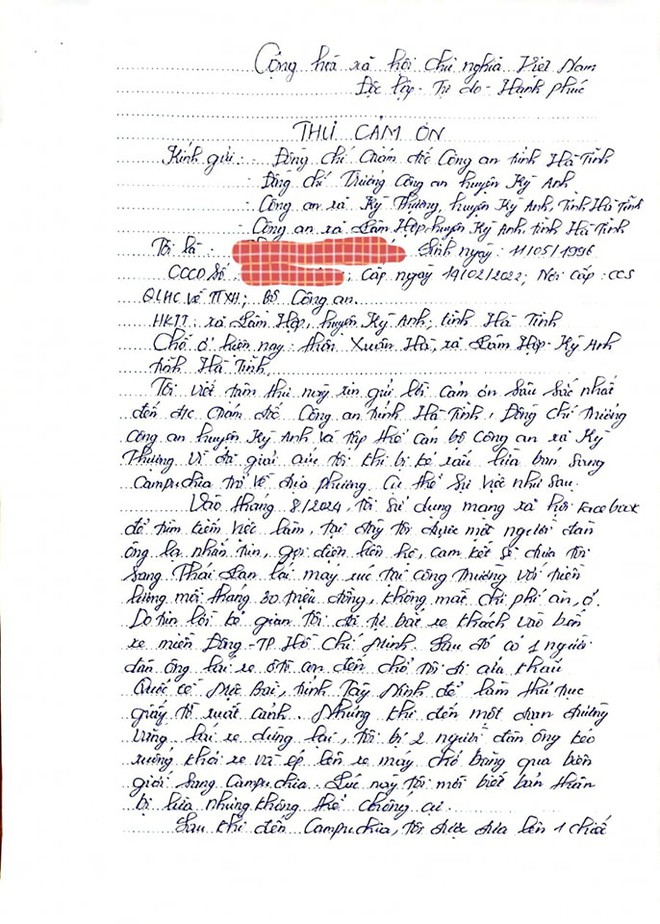 Cộng hoà xã hội chủ nghĩa Việt Nam
Độc lập - Tự do - Hạnh phúc
THƯ CẢM ƠN
Kính gửi: - Đồng chí Giám đốc Công an tỉnh Hà Tĩnh
- Đồng chí Trưởng Công an huyện Kỳ Anh
- Công an xã Kỳ Thượng, huyện Kỳ Anh, tỉnh Hà Tĩnh
- Công an xã Lâm Hợp, huyện Kỳ Anh, tỉnh Hà Tĩnh
Tôi là: Sinh ngày: 11/05/1996
CCCD Số: Cấp ngày 19/02/2022; Nơi cấp: CCS
QLHC về TTXH; Bộ Công an.
HKTT: xã Lâm Hợp, huyện Kỳ Anh, tỉnh Hà Tĩnh
Chỗ ở hiện nay: thôn Xuân Hà, xã Lâm Hợp - Kỳ Anh
tỉnh Hà Tĩnh.
Tôi viết tâm thư này xin gửi lời cảm ơn sâu sắc nhất
đến đ/c Giám đốc Công an tỉnh Hà Tĩnh, Đồng chí Trưởng
Công an huyện Kỳ Anh và tập thể cán bộ Công an xã Kỳ
Thượng vì đã giải cứu tôi khi bị kẻ xấu lừa bán sang
Campuchia trở về địa phương. Cụ thể sự việc như sau.
Vào tháng 8/2024, tôi sử dụng mạng xã hội facebook
để tìm kiếm việc làm, tại đây tôi được một người đàn
ông lạ nhắn tin, gọi điện liên hệ, cam kết sẽ đưa tôi
sang Thái Lan lái máy xúc tại công trường với tiền
lương mỗi tháng 30 triệu đồng, không mất chi phí ăn, ở.
Do tin lời kẻ gian tôi đã tự bắt xe khách vào bến
xe miền Đông - TP Hồ Chí Minh. Sau đó có 1 người
đàn ông lái xe ôtô con đến chở tôi đi cửa khẩu
Quốc tế Mộc Bài, tỉnh Tây Ninh để làm thủ tục
giấy tờ xuất cảnh. Nhưng khi đến một đoạn đường
vắng, lái xe dừng lại, tôi bị 2 người đàn ông kéo
xuống khỏi xe và ép lên xe máy chở băng qua biên
giới sang Campuchia. Lúc này tôi mới biết bản thân
bị lừa nhưng không thể chống cự.
Sau khi đến Campuchia, tôi được đưa lên 1 chiếc